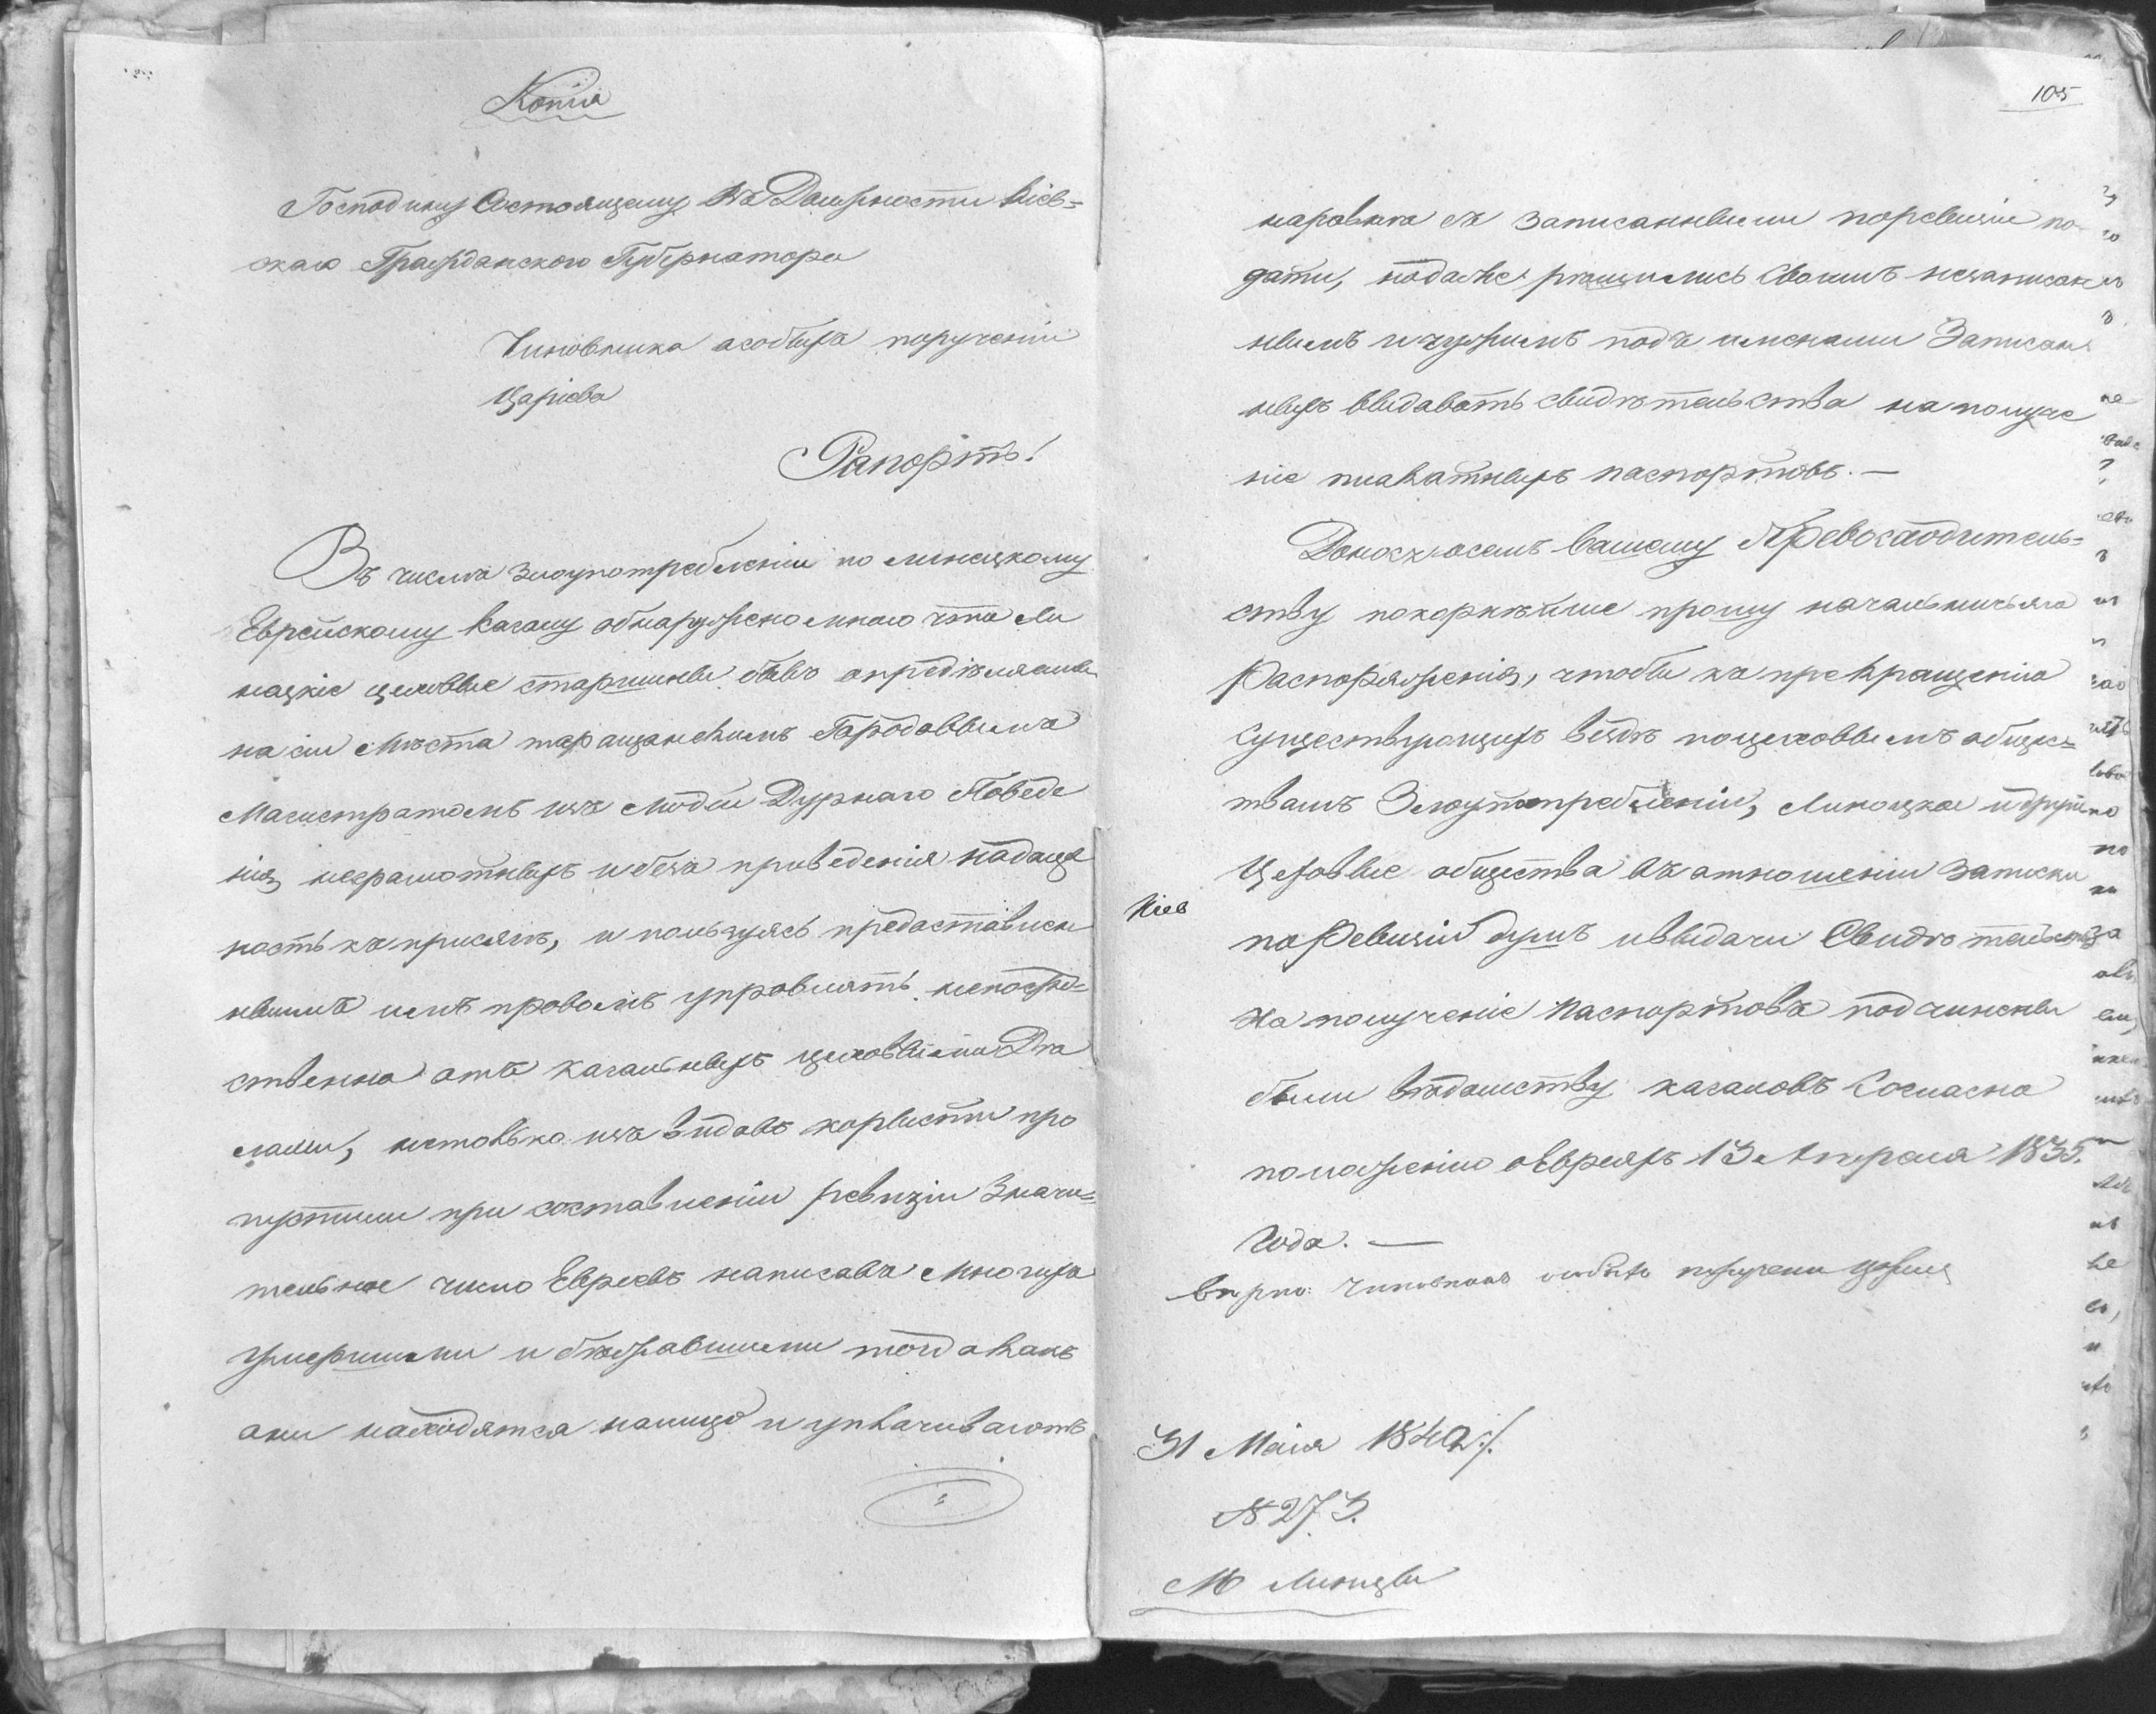 Копія
Господину Состоящему въ Должности Кіев=
скаго Гражданского Губернатора
Чиновника особыхъ порученій
Царіова
Рапортъ!
Въ числѣ злоупотребленій по линецкому
Еврейскому кагалу обнаружено мною что Ли
нецкіе цеховые старшины бывъ опредѣляемы
на сіи мѣста таращанскимъ Городовымъ
Магистратомъ изъ людей Дурнаго Поведе
нія, неграмотныхъ и безъ приведенія на долж
ность къ присягѣ, и пользуясь предоставлен
нымъ имъ правомъ управлять непосред=
ственно отъ кагальныхъ цеховыми Дѣ
лами, нетолько изъ видовъ корысти про
пустили при составленіи ревизіи Значи=
тельное число Евреевъ написавъ Многихъ
умершими и бѣжавшими тогда какъ
они находятся налицо и уплачиваютъ
105
наровнѣ съ записанными поревизіи по-
дати, но даже рѣшились Своимъ незаписан
нымъ и чужимъ подъ именами Записан
ныхъ выдавать свидѣтельства на получе
ніе плакатныхъ паспортовъ. —
Донося о семъ Вашему Превосходитель=
ству покорнѣйше прошу начальничьяго
Распоряженія, чтобы къ прекращенію
существующихъ вездѣ поцеховымъ общес=
твамъ Злоупотребленій, Линецкое и другіе
Цеховые общества въ отношеніи записки
по Ревизіи душъ и выдачи Свидѣтельствъ
На полученіе паспортовъ подчинены
были вѣдомству кагаловъ Согласно
положенію оЕвреяхъ 13 Апреля 1835.
Года. —
Вѣрно: Чиновникъ особыхъ порученій
Кіев
31 Маія 1840 г.
№ 273.
М Линцы